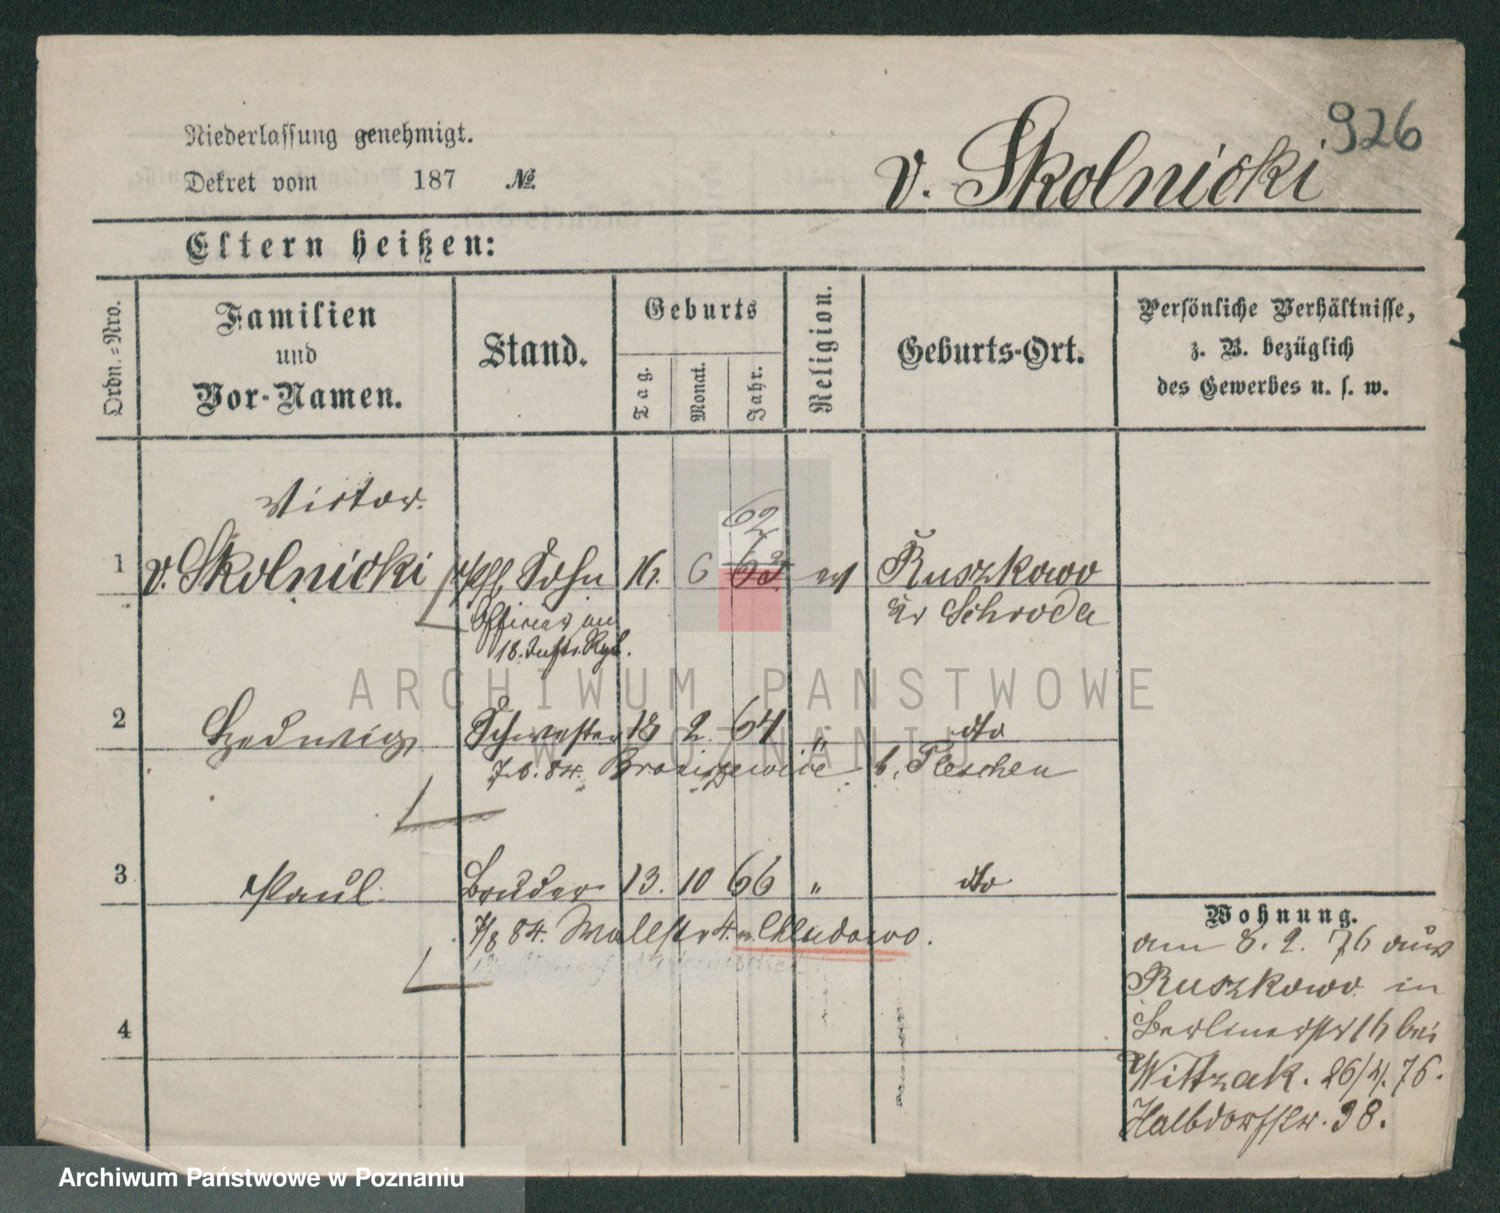 926
Niederlassung genehmigt.
Dekret vom 187 №
v. Skolnicki
Eltern heißen:
Ordn.=Nro.
Familien
und
Vor-Namen.
Stand.
Geburts
Tag.
Monat.
Jahr.
Religion.
Geburts-Ort.
Persönliche Verhältnisse,
z. B. bezüglich
des Gewerbes u. s. w.
Victor. 62
1 v. Skolnicki Sohn 16. 6 63 ev Ruszkowo
Kr Schroda
18. Inftr. Rgt.
2 Hedwig Schwester 18 2. 64 " dto
7.6.84. b. Pleschen
3 Paul Bruder 13. 10 66 " dto
7/8 84. Wallstr 4. n. Chludowo.
4
Wohnung.
am 8. 2. 76 aus
Ruszkowo in
Berlinerstr 16 bei
Wittzak. 26/4. 76.
Halbdorfstr. 38.
ARCHIWUM PAŃSTWOWE
W POZNANIU
Archiwum Państwowe w Poznaniu